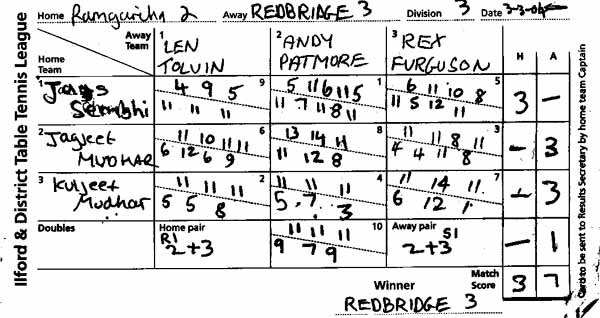 Ilford & District Table Tennis League
Home Ramgarhia 2 Away REDBRIDGE 3 Division 3 Date 3-3-04
Away Team
Home Team
1 LEN TOLVIN
2 ANDY PATMORE
3 REX FURGUSON
H A
1 Sembhi
4 9 5 9
11 11 11
5 11 6 11 5 1
11 7 11 8 11
6 11 10 8 5
11 5 12 11
3 -
2 Jagjeet MUDHAR
11 10 11 11 6
6 12 6 9
13 14 11 8
11 12 8
11 11 8 11 3
4 4 11 8
- 3
3 Kuljeet Mudhar
11 11 11 2
5 5 8
11 11 11 4
5 7 3
11 14 11 7
6 12
- 3
Doubles
Home pair
2+3
11 11 11 10
9 7 9
Away pair
2+3
- 1
Winner
REDBRIDGE 3
Match Score 3 7
Card to be sent to Results Secretary by home team Captain